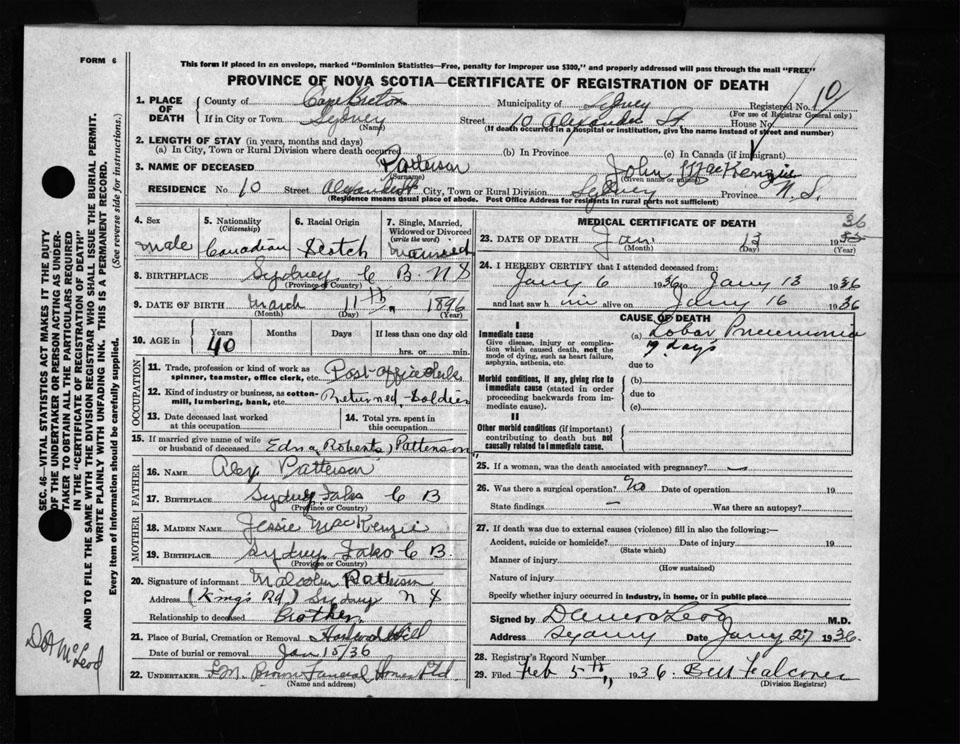 FORM 6
This form if placed in an envelope, marked "Dominion Statistics—Free, penalty for improper use $300," and properly addressed will pass through the mail "FREE"
PROVINCE OF NOVA SCOTIA—CERTIFICATE OF REGISTRATION OF DEATH
1. PLACE OF DEATH County of Cape Breton Municipality of Sydney Registered No. 10
(For use of Registrar General only)
If in City or Town Sydney Street 10 Alexander St. House No.
(Name) (If death occurred in a hospital or institution, give the name instead of street and number)
2. LENGTH OF STAY (in years, months and days)
(a) In City, Town or Rural Division where death occurred (b) In Province (c) In Canada (if immigrant)
3. NAME OF DECEASED Patterson John MacKenzie
(Surname) (Given name or names)
RESIDENCE No. 10 Street Alexander St City, Town or Rural Division Sydney Province N. S.
(Residence means usual place of abode. Post Office Address for residents in rural parts not sufficient)
4. Sex Male
5. Nationality (Citizenship) Canadian
6. Racial Origin Scotch
7. Single, Married, Widowed or Divorced (write the word) Married
8. BIRTHPLACE Sydney C B. N S
(Province or Country)
9. DATE OF BIRTH March 11th 1896
(Month) (Day) (Year)
10. AGE in Years 40 Months Days If less than one day old
hrs. or min.
OCCUPATION
11. Trade, profession or kind of work as spinner, teamster, office clerk, etc. Post office clerk
12. Kind of industry or business, as cotton-mill, lumbering, bank, etc. Returned Soldier
13. Date deceased last worked at this occupation
14. Total yrs. spent in this occupation
15. If married give name of wife or husband of deceased Edna (Roberts) Patterson
FATHER
16. NAME Alex Patterson
17. BIRTHPLACE Sydney C B
(Province or Country)
MOTHER
18. MAIDEN NAME Jessie MacKenzie
19. BIRTHPLACE Sydney C B.
(Province or Country)
20. Signature of informant Malcolm Patterson
Address (Kings Rd) Sydney N S
Relationship to deceased Brother
21. Place of Burial, Cremation or Removal Hardwood Hill
Date of burial or removal Jan 15/36
22. UNDERTAKER Brown Funeral Home Ltd
(Name and address)
MEDICAL CERTIFICATE OF DEATH
23. DATE OF DEATH Jan 13 1935 36
(Month) (Day) (Year)
24. I HEREBY CERTIFY that I attended deceased from:
Jany 6 1936 to Jany 13 1936
and last saw him alive on Jany 16 1936
CAUSE OF DEATH
I
Immediate cause (a) Lobar Pneumonia
Give disease, injury or complication which caused death, not the mode of dying, such as heart failure, asphyxia, asthenia, etc.
days
due to
Morbid conditions, if any, giving rise to immediate cause (stated in order proceeding backwards from immediate cause).
(b)
due to
(c)
II
Other morbid conditions (if important) contributing to death but not causally related to immediate cause.
25. If a woman, was the death associated with pregnancy? —
26. Was there a surgical operation? No Date of operation 19
State findings — Was there an autopsy?
27. If death was due to external causes (violence) fill in also the following:—
Accident, suicide or homicide? Date of injury 19
(State which)
Manner of injury
(How sustained)
Nature of injury
Specify whether injury occurred in industry, in home, or in public place
Signed by M.D.
Address Sydney Date Jany 27 1936.
28. Registrar's Record Number
29. Filed Feb 5th 1936. Bert Falconer
(Division Registrar)
SEC. 46—VITAL STATISTICS ACT MAKES IT THE DUTY OF THE UNDERTAKER OR PERSON ACTING AS UNDERTAKER TO OBTAIN ALL THE PARTICULARS REQUIRED IN THE "CERTIFICATE OF REGISTRATION OF DEATH"
AND TO FILE THE SAME WITH THE DIVISION REGISTRAR WHO SHALL ISSUE THE BURIAL PERMIT.
WRITE PLAINLY WITH UNFADING INK. THIS IS A PERMANENT RECORD.
Every item of information should be carefully supplied. (See reverse side for instructions.)
McLeod